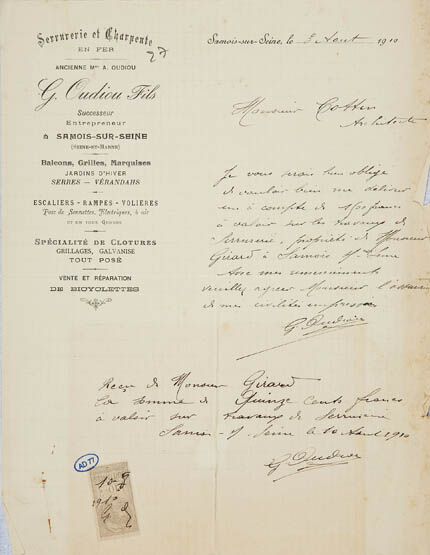 Serrurerie et Charpente
EN FER
27
ANCIENNE Mon A. OUDIOU
G. Oudiou Fils
Successeur
Entrepreneur
à SAMOIS-SUR-SEINE
(SEINE-ET-MARNE)
Balcons, Grilles, Marquises
JARDINS D'HIVER
SERRES – VÉRANDAHS
ESCALIERS - RAMPES - VOLIÈRES
Pose de Sonnettes, Électriques, à air
ET EN TOUS GENRES
SPÉCIALITÉ DE CLOTURES
GRILLAGES, GALVANISÉ
TOUT POSÉ
VENTE ET RÉPARATION
DE BICYCLETTES
Samois-sur-Seine, le 8 Aout 1910
Monsieur Cottin
Architecte
Je vous serais bien obligé
de vouloir bien me délivrer
un à compte de 1500 francs
à valoir sur les travaux de
Serrurerie, propriété de Monsieur
Girard à Samois s/ Seine
Avec mes remerciements
veuillez agréer Monsieur l'assurance
de mes civilités empressées
G Oudiou
Reçu de Monsieur Girard
la somme de Quinze cents francs
à valoir sur travaux de Serrurerie
Samois s/ Seine le 10 Aout 1910
G Oudiou
AD 77
10 - 8
1910
G